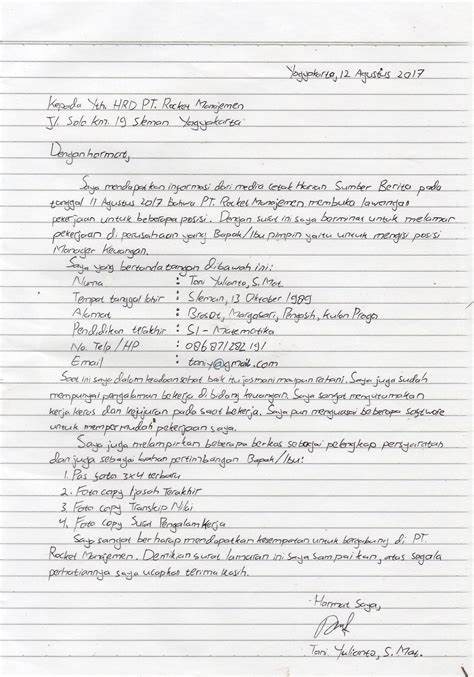 Yogyakarta, 12 Agustus 2017
Kepada Yth. HRD PT. Rocket Manajemen
Jl. Solo km. 19 Sleman Yogyakarta
Dengan hormat,
Saya mendapatkan informasi dari media cetak Harian Sumber Berita pada
tanggal 11 Agustus 2017 bahwa PT. Rocket Manajemen membuka lawangan
pekerjaan untuk beberapa posisi. Dengan surat ini saya berminat untuk melamar
pekerjaan di perusahaan yang Bapak/Ibu pimpin yaitu untuk mengisi posisi
Manager Keuangan.
Saya yang bertanda tangan dibawah ini:
Nama : Toni Yulianto, S. Mat.
Tempat tanggal lahir : Sleman, 13 Oktober 1989
Alamat : Brosot, Margosari, Pengasih, Kulon Progo
Pendidikan terakhir : S1 - Matematika
No. Telp / HP :
Email : toniy@gmail.com
Saat ini saya dalam keadaan sehat baik itu jasmani maupun rohani. Saya juga sudah
mempunyai pengalaman bekerja di bidang keuangan. Saya sangat mengutamakan
kerja keras dan kejujuran pada saat bekerja. Saya pun menguasai beberapa software
untuk mempermudah pekerjaan saya.
Saya juga melampirkan beberapa berkas sebagai pelengkap persyaratan
dan juga sebagai bahan pertimbangan Bapak/Ibu:
1. Pas foto 3x4 terbaru
2. Foto copy Ijasah Terakhir
3. Foto copy Transkip Nilai
4. Foto copy Surat Pengalam Kerja
Saya sangat berharap mendapatkan kesempatan untuk bergabung di PT.
Rocket Manajemen. Demikian surat lamaran ini saya sampaikan, atas segala
perhatiannya saya ucapkan terima kasih.
Hormat Saya,
Toni Yulianto, S. Mat.